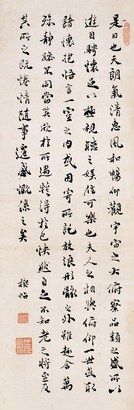 是日也天朗氣清惠風和暢仰觀宇宙之大俯察品類之盛所以
遊目騁懷足以極視聽之娛信可樂也夫人之相與俯仰一世或取
諸懷抱悟言一室之內或因寄所託放浪形骸之外雖趣舍萬
殊靜躁不同當其欣於所遇暫得於己快然自足不知老之將至及
其所之既惓情隨事遷感慨係之矣